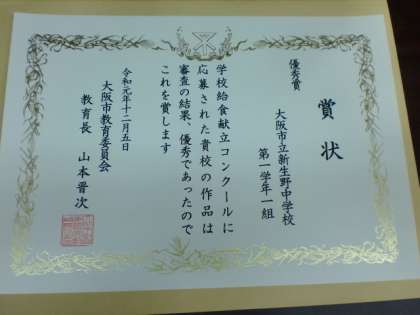 賞状
優秀賞
大阪市立新生野中学校
第一学年一組
学校給食献立コンクールに
応募された貴校の作品は
審査の結果、優秀であったので
これを賞します
令和元年十二月五日
大阪市教育委員会
教育長 山本晋次